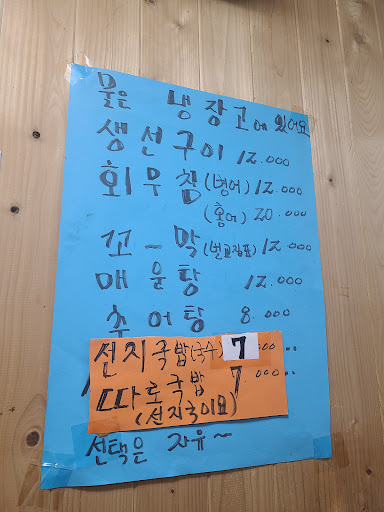 물은 냉장고에 있어요
생선구이 12.000
회무침(병어) 12.000
(홍어) 20.000
꼬_막(벌교직표) 12.000
매운탕 12.000
추어탕 8.000
선지국밥(국수) 7 000
따로국밥 7 000
(선지국이요)
선택은 자유~